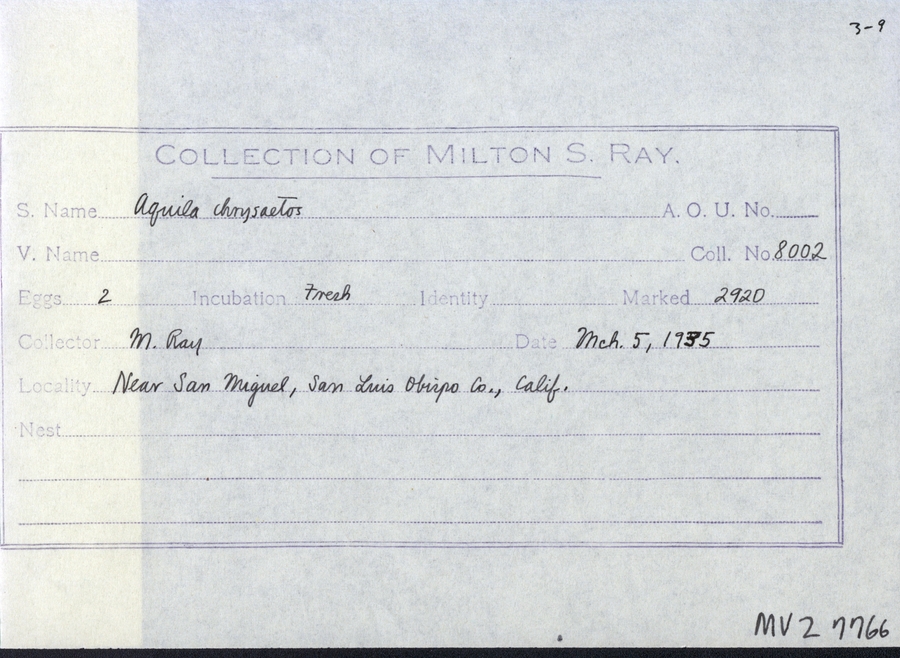 3-9
COLLECTION OF MILTON S. RAY.
S. Name Aquila chrysaetos A. O. U. No.
V. Name Coll. No. 8002
Eggs 2 Incubation Fresh Identity Marked 2920
Collector M. Ray Date Mch. 5, 1935
Locality Near San Miguel, San Luis Obispo Co., Calif.
Nest
MVZ 7766